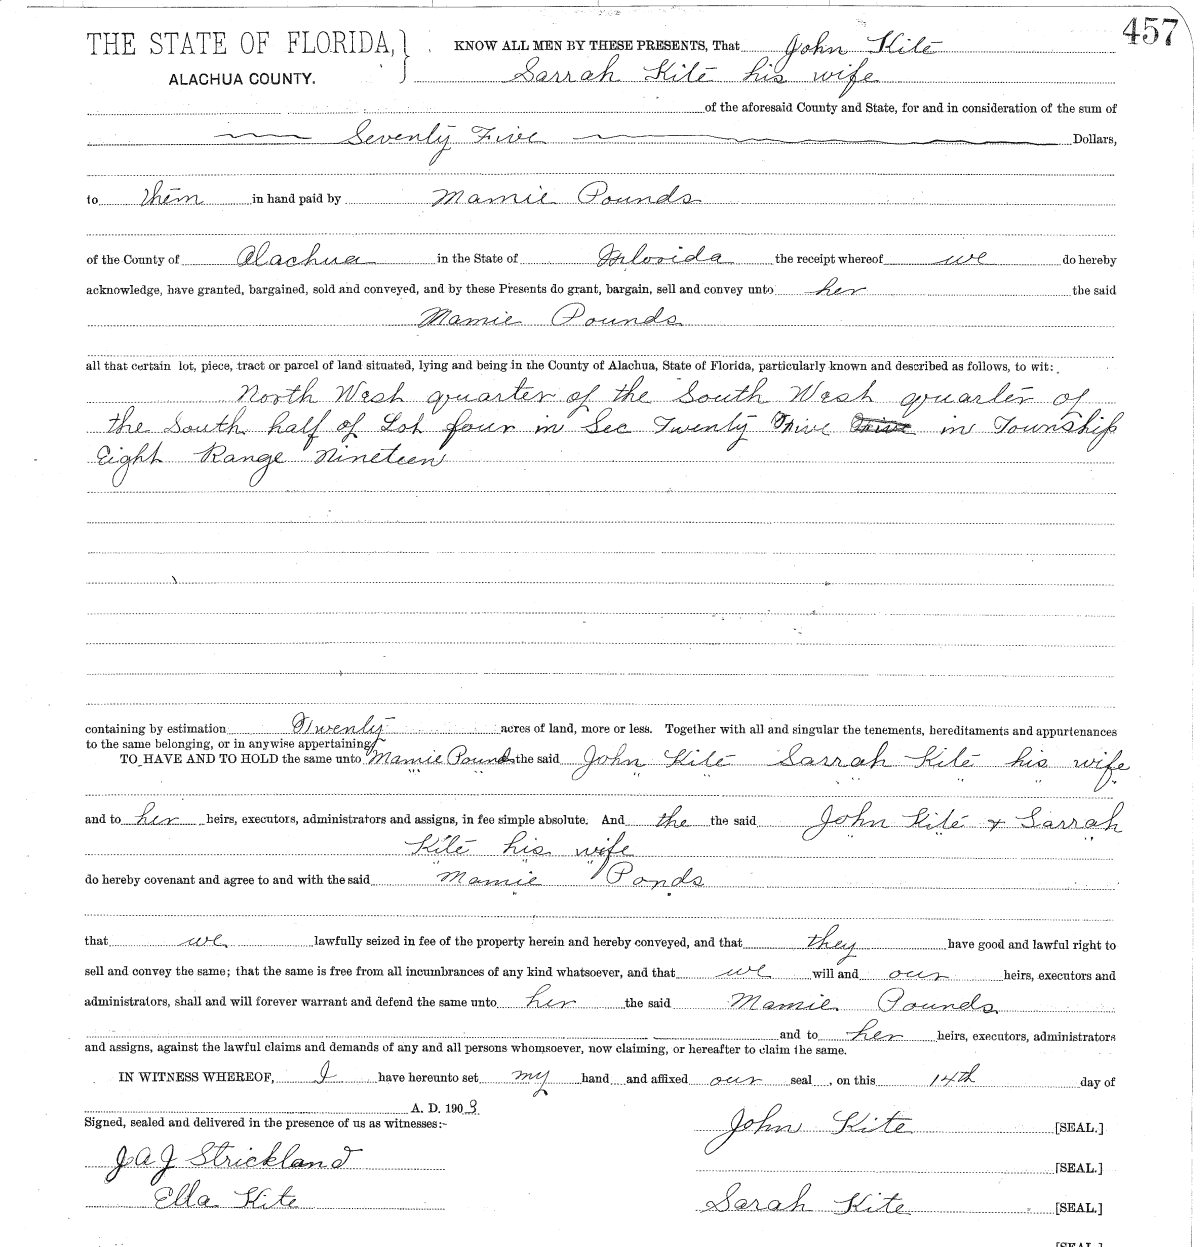 457
THE STATE OF FLORIDA, } KNOW ALL MEN BY THESE PRESENTS, That John Kite
ALACHUA COUNTY. Sarrah Kite his wife
of the aforesaid County and State, for and in consideration of the sum of
Seventy Five Dollars,
to them in hand paid by Mamie Pounds
of the County of Alachua in the State of Florida the receipt whereof we do hereby
acknowledge, have granted, bargained, sold and conveyed, and by these Presents do grant, bargain, sell and convey unto her the said
Mamie Pounds
all that certain lot, piece, tract or parcel of land situated, lying and being in the County of Alachua, State of Florida, particularly known and described as follows, to wit:
North West quarter of the South West quarter of
the South half of Lot four in Sec Twenty Five in Township
Eight Range Nineteen
containing by estimation Twenty acres of land, more or less. Together with all and singular the tenements, hereditaments and appurtenances
to the same belonging, or in anywise appertaining
TO HAVE AND TO HOLD the same unto Mamie Pounds the said John Kite Sarrah Kite his wife
and to her heirs, executors, administrators and assigns, in fee simple absolute. And the the said John Kite + Sarrah
Kite his wife
do hereby covenant and agree to and with the said Mamie Ponds
that we lawfully seized in fee of the property herein and hereby conveyed, and that they have good and lawful right to
sell and convey the same; that the same is free from all incumbrances of any kind whatsoever, and that we will and our heirs, executors and
administrators, shall and will forever warrant and defend the same unto her the said Mamie Pounds
and to her heirs, executors, administrators
and assigns, against the lawful claims and demands of any and all persons whomsoever, now claiming, or hereafter to claim the same.
IN WITNESS WHEREOF, I have hereunto set my hand and affixed our seal, on this 14th day of
A. D. 1903
Signed, sealed and delivered in the presence of us as witnesses:- John Kite [SEAL.]
J A J Strickland [SEAL.]
Ella Kite Sarah Kite [SEAL.]